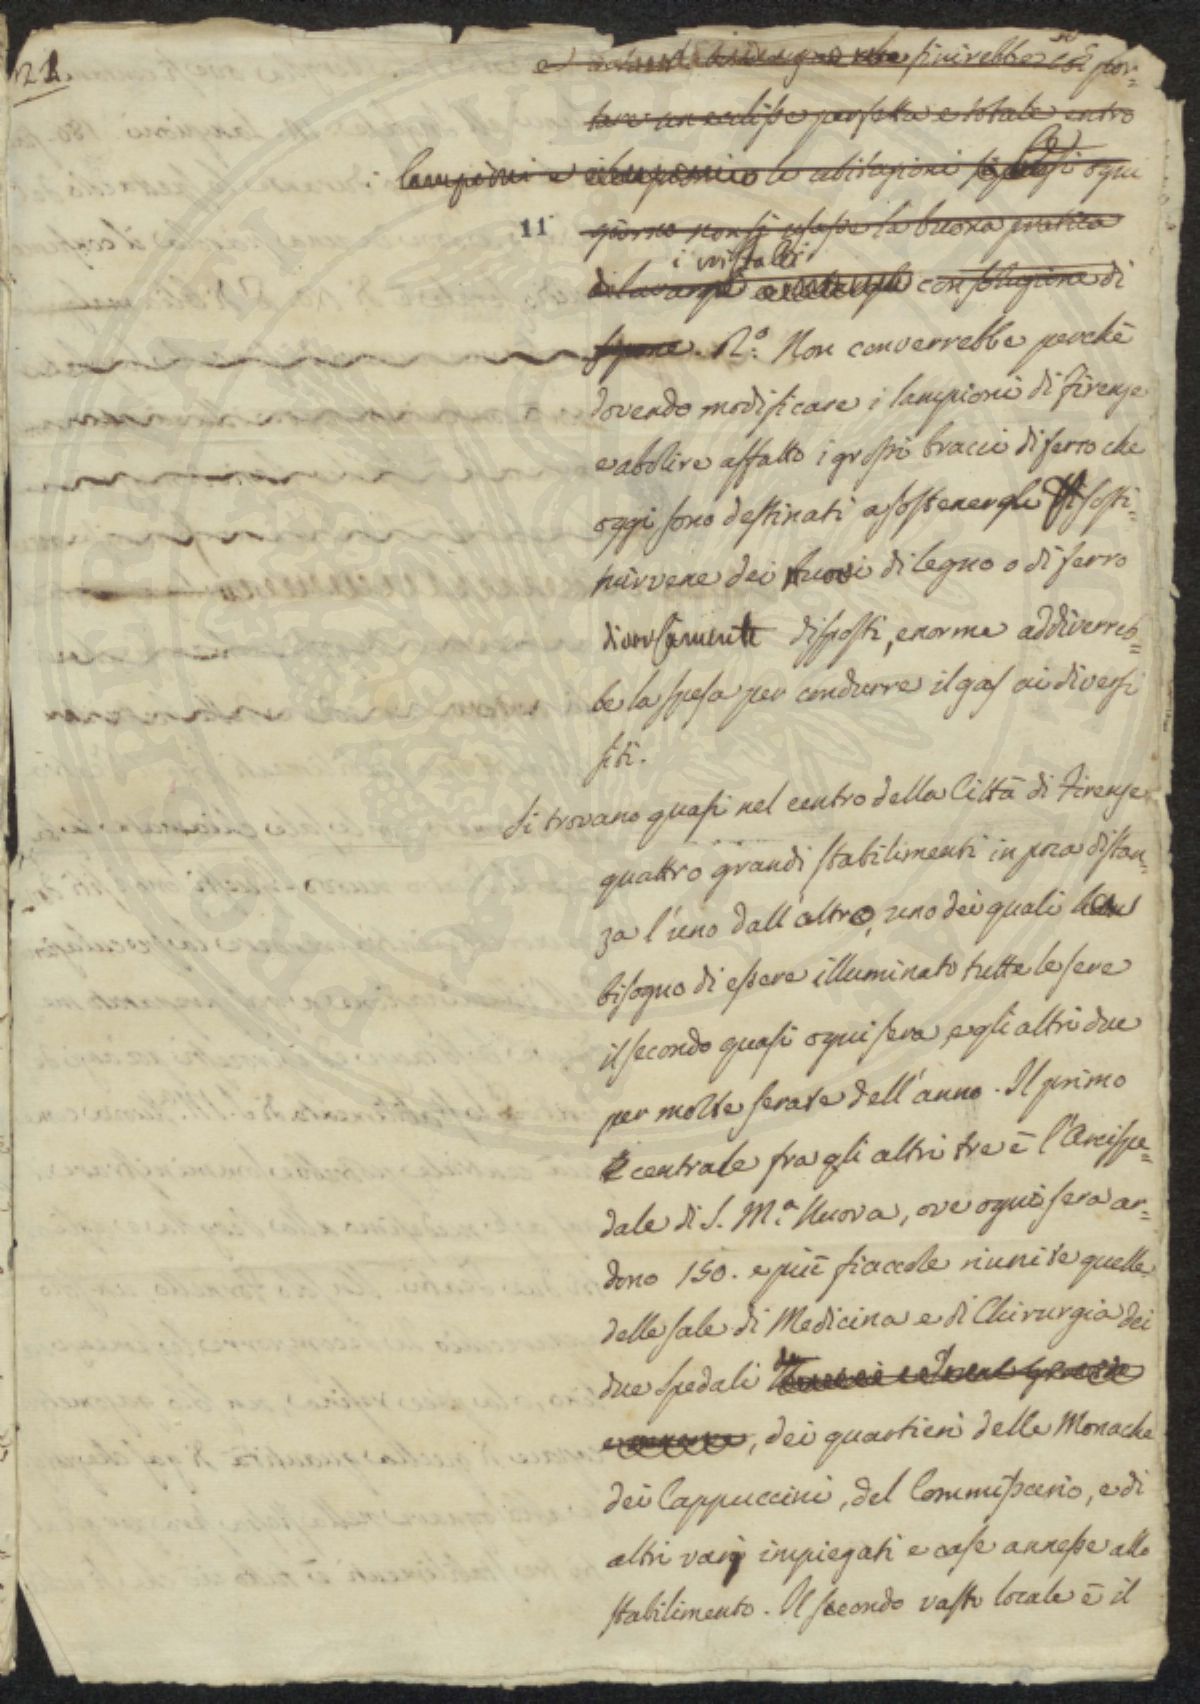 21.
e finirebbe col por=
tare un eclisse perfetta e totale entro
lampioni e le abitazioni se ogni
11
giorno non si usasse la buona pratica
i cristalli
di lavargli con soluzione di
sapone. R.o Non converrebbe perchè
dovendo modificare i lampioni di Firenze
e abolire affatto i grossi bracci di ferro che
oggi sono destinati a sostenergli e sosti=
tuirvene dei nuovi di legno o di ferro
diversamente disposti, enorme addiverreb=
be la spesa per condurre il gas ai diversi
siti.
Si trovano quasi nel centro della Città di Firenze
quattro grandi stabilimenti in poca distan=
za l'uno dall'altro, uno dei quali ha
bisogno di essere illuminato tutte le sere
il secondo quasi ogni sera, e gli altri due
per molte serate dell'anno. Il primo
e centrale fra gli altri tre è l'Arcispe=
dale di S. M.a Nuova, ove ogni sera ar=
dono 150. e più fiaccole riunite quelle
delle sale di Medicina e di Chirurgia dei
due spedali
, dei quartieri delle Monache
dei Cappuccini, del Commissario, e di
altri varj impiegati e case annesse allo
stabilimento. Il secondo vasto locale è il